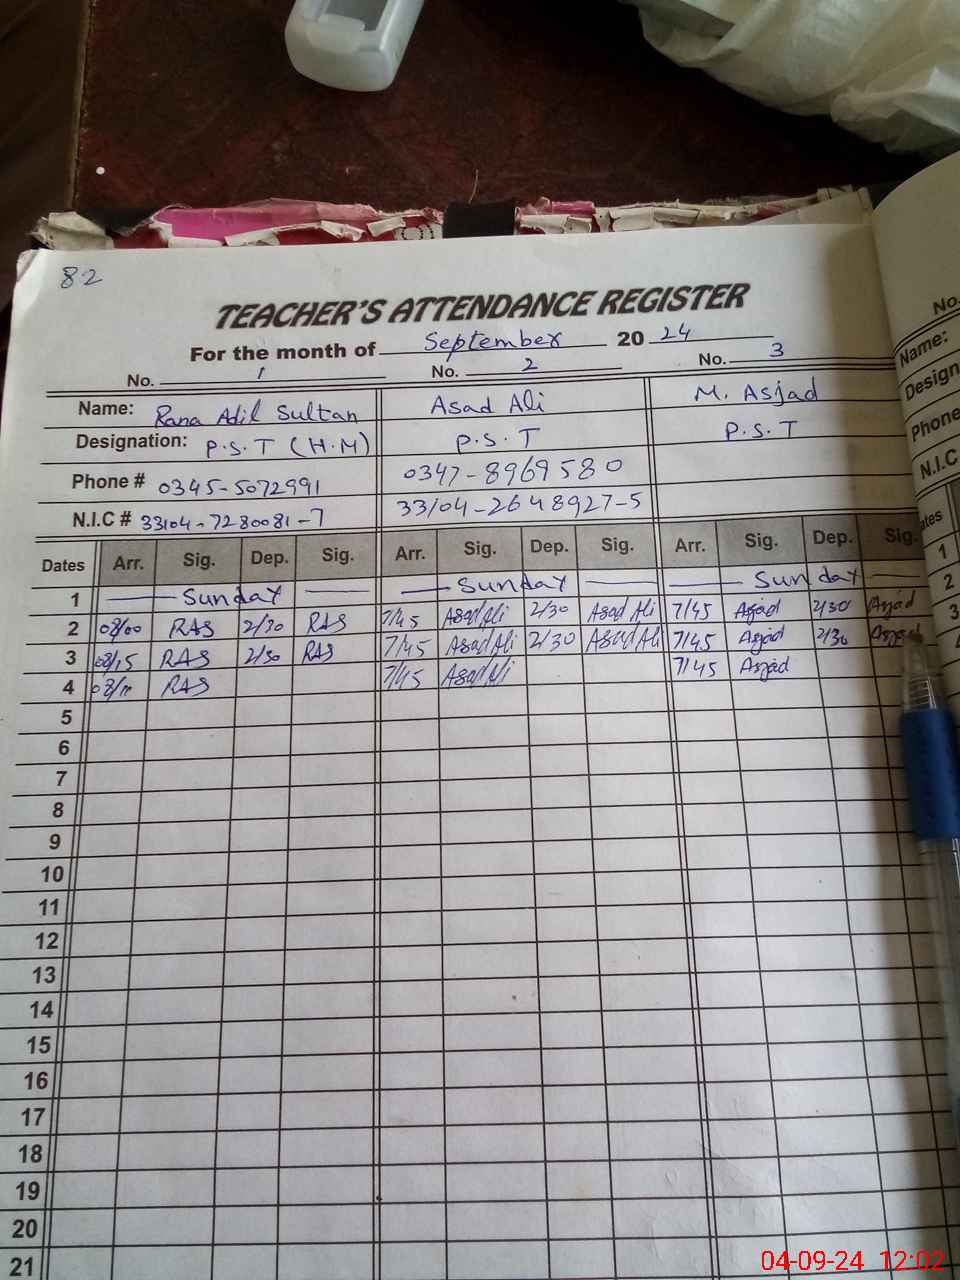 82
TEACHER'S ATTENDANCE REGISTER
For the month of September 2024
No. 1 No. 2 No. 3
Name: Rana Adil Sultan Asad Ali M. Asjad
Designation: P.S.T (H.M) P.S.T P.S.T
Phone # 0345-5072991 0347-8969580
N.I.C # 33104-7280081-7 33104-2648927-5
Dates Arr. Sig. Dep. Sig. Arr. Sig. Dep. Sig. Arr. Sig. Dep. Sig.
1 Sunday Sunday Sunday
2 08/00 RAS 2/30 RAS 7/45 Asad Ali 2/30 Asad Ali 7/45 Asjad 2/30 Asjad
3 08/15 RAS 2/30 RAS 7/45 Asad Ali 2/30 Asad Ali 7/45 Asjad 2/30 Asjad
4 RAS 7/45 Asad Ali 7/45 Asjad
5
6
7
8
9
10
11
12
13
14
15
16
17
18
19
20
21
No.
Name:
Design
Phone
N.I.C
ates
1
2
3
04-09-24 12:02